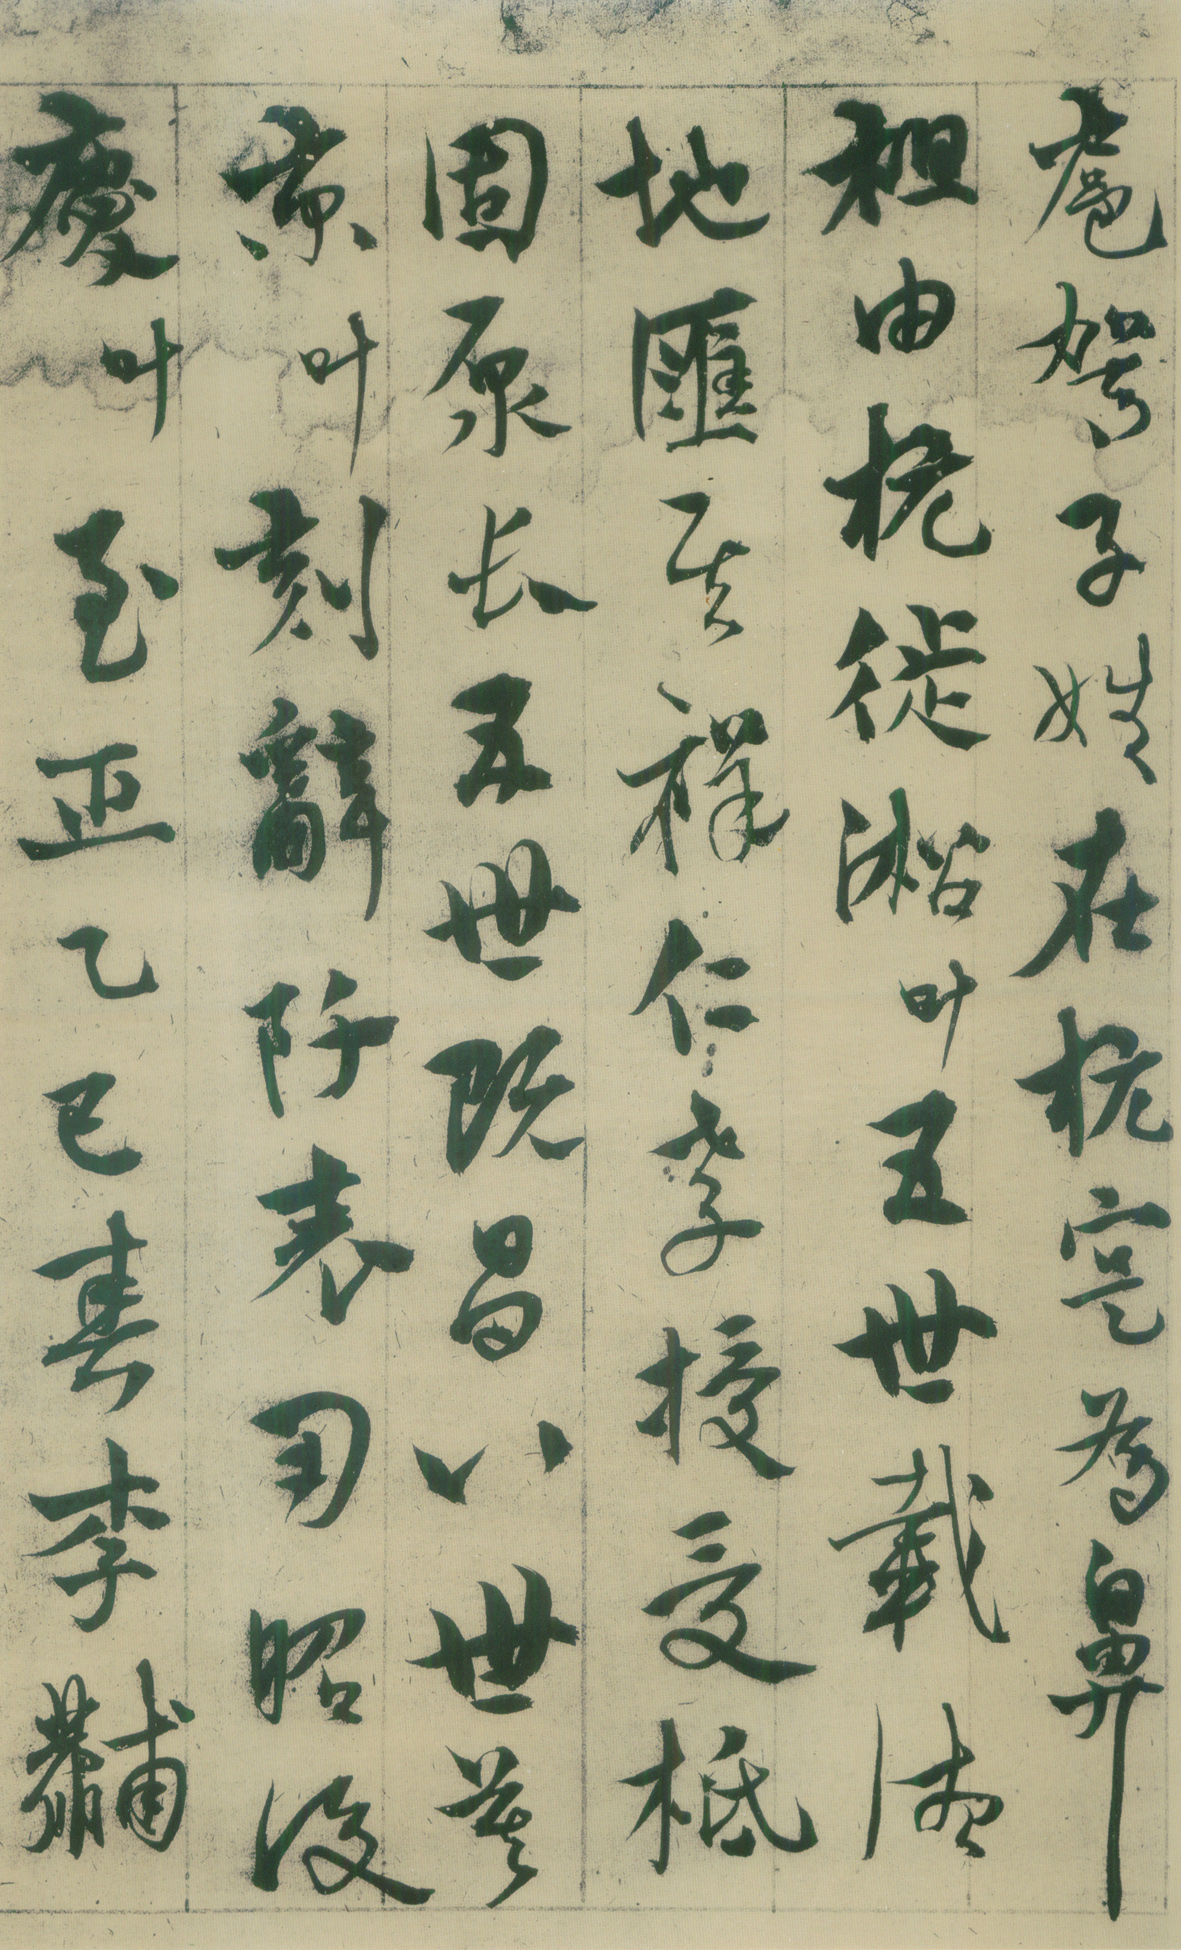 扈駕子姓在杭寔為鼻
祖由杭徙湖叶五世載德
地匯其祥仁孝授受柢
固原長五世既昌八世莫
京叶刻辭阡表用昭後
慶叶至正乙巳春李黼